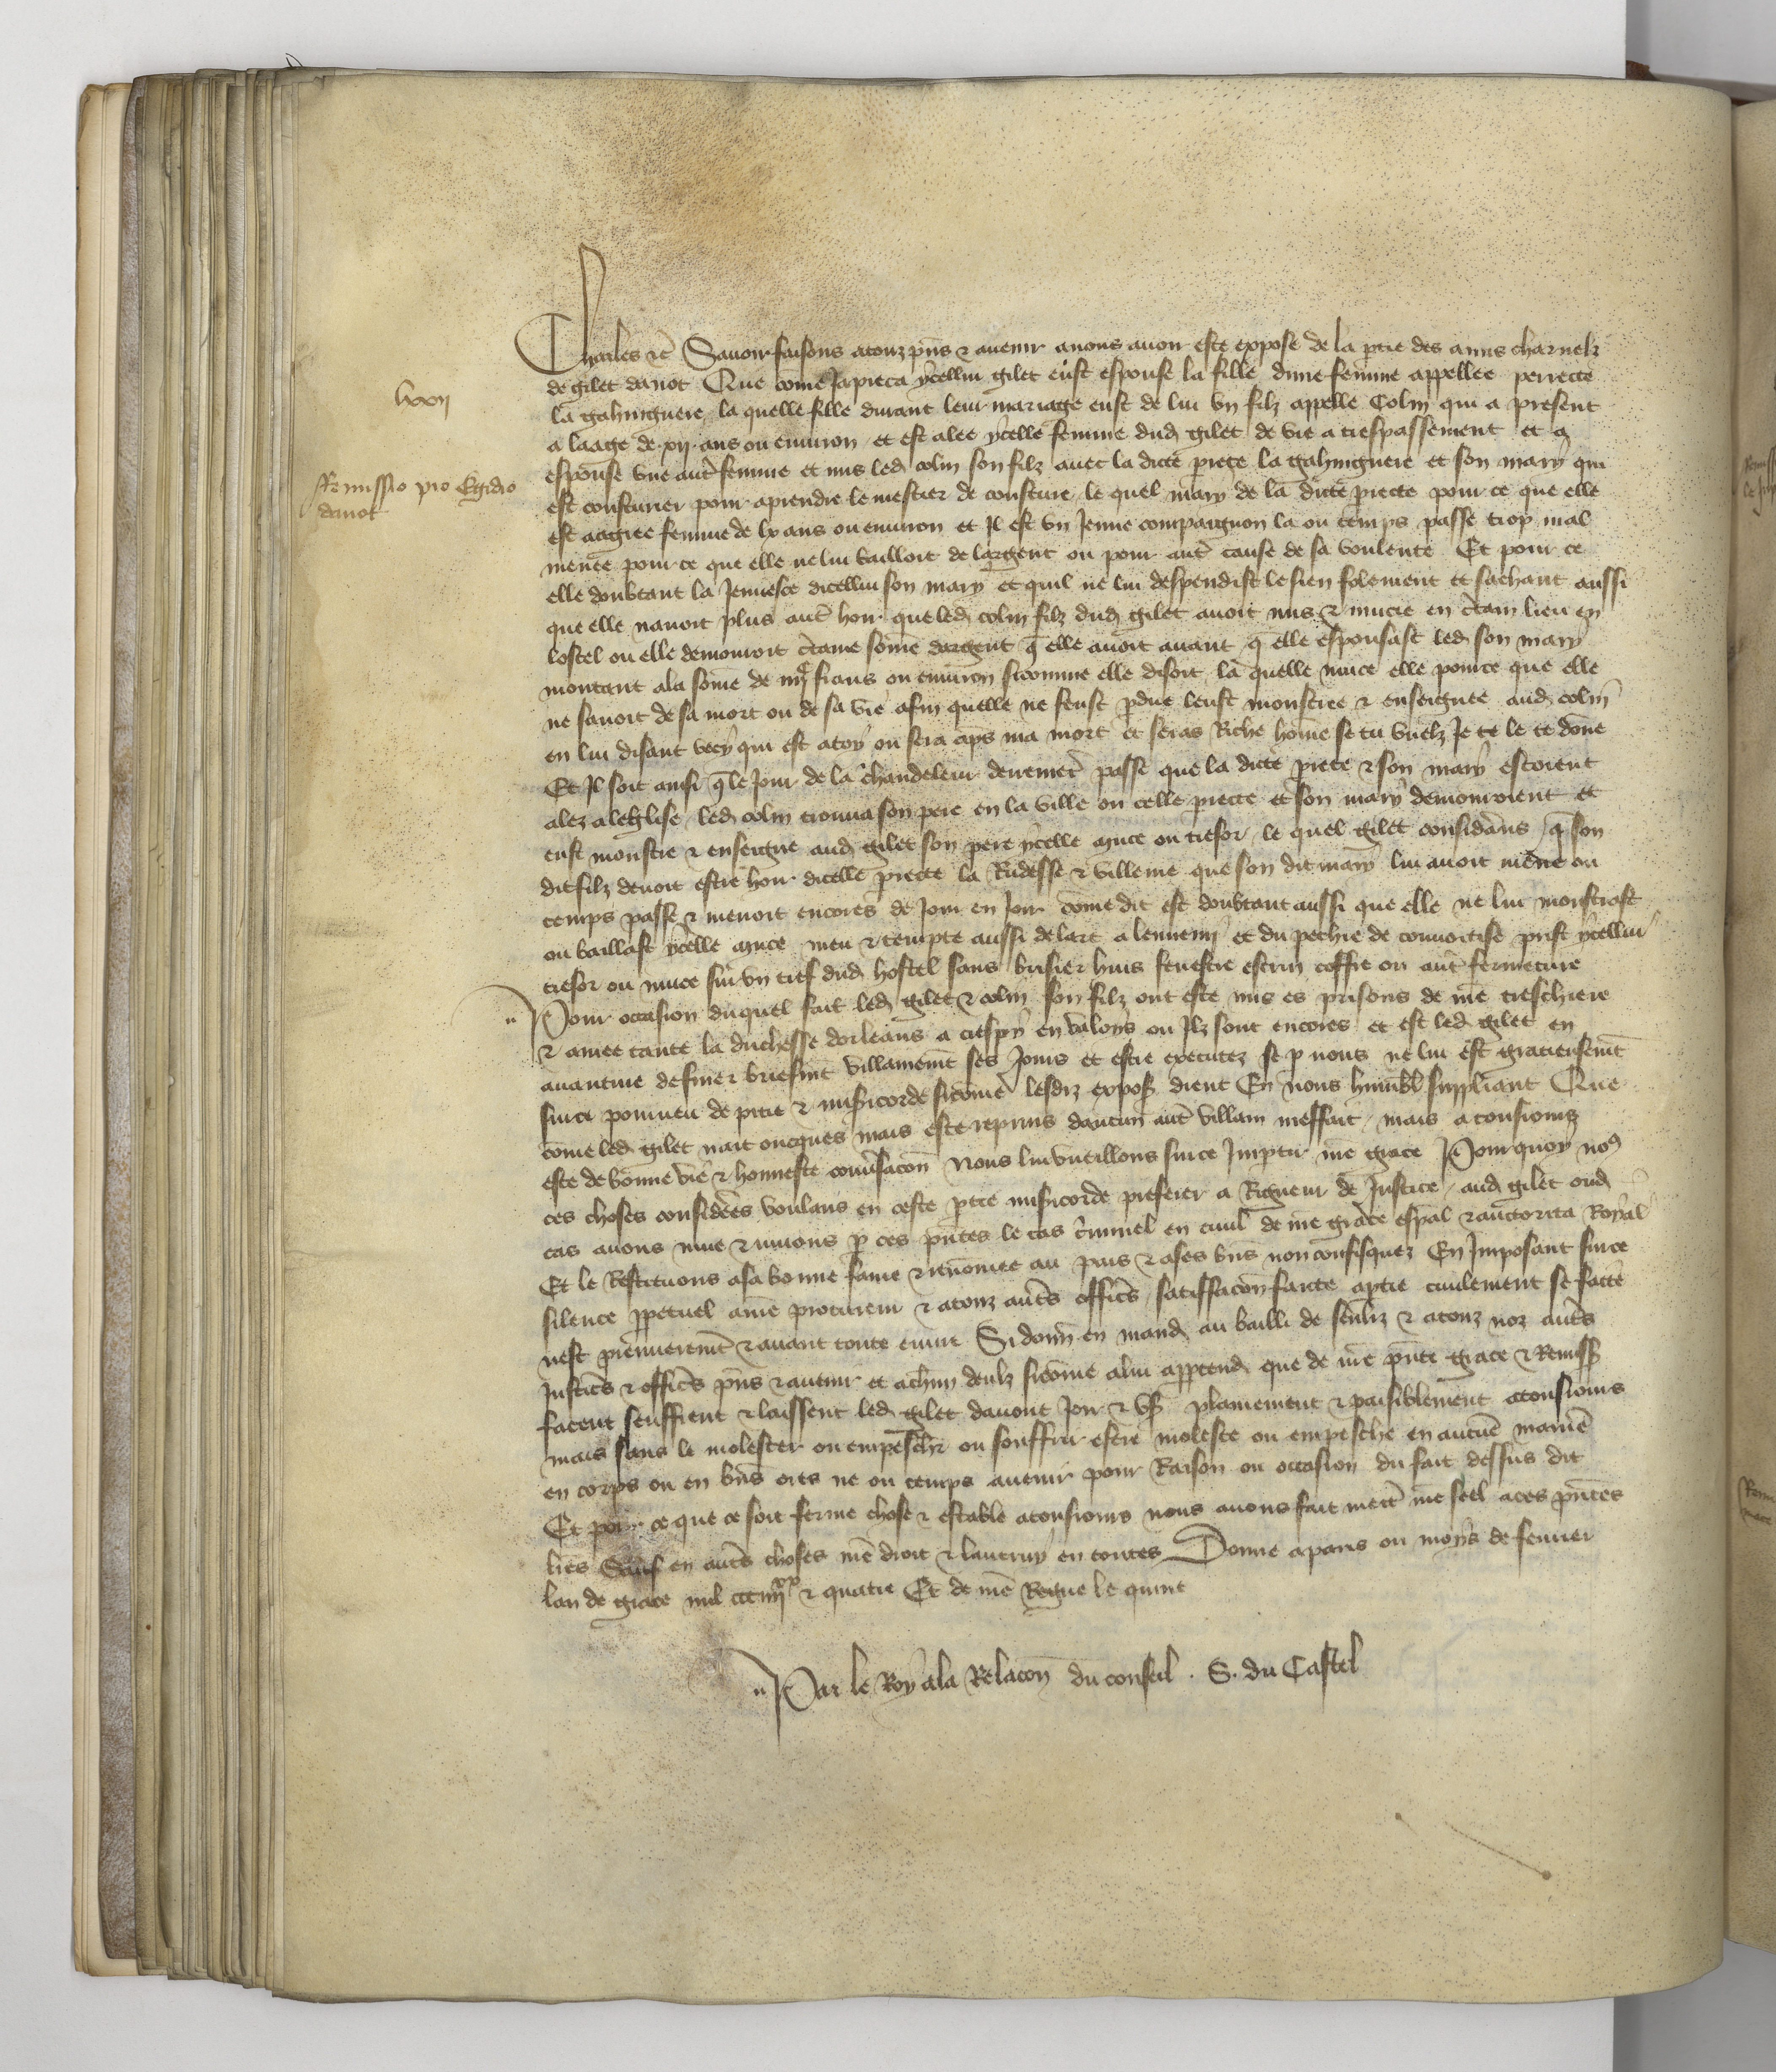 Charles etc Savoir faisons a touz pns & avenir a nous avoir este expose de la ptie des amis charnelz
de gilet davot Que come Japieca ycellui gilet eust espouse la fille dune femme appellee perrecte
la gahingniere la quelle fille durant leur mariage eust de lui un filz appelle Colin qui a present
lxxij
a laage de xij ans ou environ et est alee ycelle femme dud gilet de vie a trespassement et a
espouse une autre femme et mis led colin son filz avec la dicte precte la gahingniere et son mary qui
Remissio pro Egidio
davot
est cousturier pour aprendre le mestier de cousture le quel mary de la dicte precte pour ce que elle
est aagiee femme de lx ans ou environ et Il est un Jeune compaignon la ou temps passe trop mal
menee pour ce que elle ne lui bailloit de largent ou pour aut cause de sa voulente Et pour ce
elle doubtant la Jeunesce dicellui son mary et quil ne lui despendist le sien folement et sachant aussi
que elle navoit plus aut hoir que led colin filz dud gilet avoit mis & mucie en ctain lieu en
lostel ou elle demouroit ctaine some dargent q elle avoit avant q elle espousast led son mary
montant a la some de iiijc frans ou environ sicomme elle disoit la quelle muce elle pource que elle
ne savoit de sa mort ou de sa vie afin quelle ne feust pdue leust monstree & enseignee aud colin
en lui disant vecy qui est a toy ou sera aps ma mort et seras Riche home se tu vuelz Je te le te done
Et Il soit ainsi q le Jour de la chandeleur derremet passe que la dicte precte & son mary estoient
alez a leglise led colin trouva son pere en la ville ou celle precte et son mary demouroient et
eust monstre & enseigne aud gilet son pere ycelle muce ou tresor le quel gilet considans q son
dit filz devoit estre hoir dicelle precte la Rudesse & villenie que son dit mary lui avoit mene ou
temps passe & menoit encores de Jour en Jour come dit est doubtant aussi que elle ne lui monstrast
ou baillast ycelle muce meu & tempte aussi de lart a lennemi et du pechie de convoitise prist ycellui
tresor ou muce sur un tref dud hostel sans brisier huis fenestre escrin coffre ou aut fermeture
Pour occasion duquel fait led gilet & colin son filz ont este mis es prisons de nre treschiere
& amee tante la duchesse dorleans a crespy en valoys ou Ilz sont encores et est led gilet en
avanture de finer briefmt villainemt ses Jours et estre executez se p nous ne lui est gracieusemt
sur ce pourveu de pitie & misicorde sicome lesdiz expos dient En nous humbl suppliant Que
come led gilet nait oncques mais este reprins daucun aut villain meffait mais a tousiours
este de bonne vie & honneste conusacon Nous lui vueillons sur ce Imptir nre grace Pour quoy nos
ces choses considees voulans en ceste ptie misicorde preferer a Rigueur de Justice aud gilet oud
cas avons mue & muons p ces pntes le cas criminel en civil de nre grace espal & auctorita Royal
Et le Restituons a sa bonne fame & renomee au pais & a ses bns non confisquez En Imposant sur ce
silence ppetuel a nre procureur & a touz auts offics satisffacon faicte a ptie civilement se faicte
nest premieremt & avant toute euure Si donn en mand au bailli de senliz & a touz noz auts
Justics & offics pns & avenir et a chun deulz sicome a lui apptend que de nre pnte grace & Remiss
facent seuffrent & laissent led gilet davout Jouir & us plainement & paisiblement a tousiours
mais sans le molester ou empeschr ou souffrir estre moleste ou empesche en aucune maniee
en corps ou en bns ores ne ou temps avenir pour Raison ou occasion du fait dessus dit
Et pour ce que ce soit ferme chose & estable a tousiours nous avons fait mect nre seel a ces pntes
lres Sauf en auts choses nre droit & lautruy en toutes Donne a paris ou moys de fevrier
lan de grace mil ccc iiijxx & quatre Et de nre Regne le quint
Par le Roy a la Relacon du conseil . S. du Castel